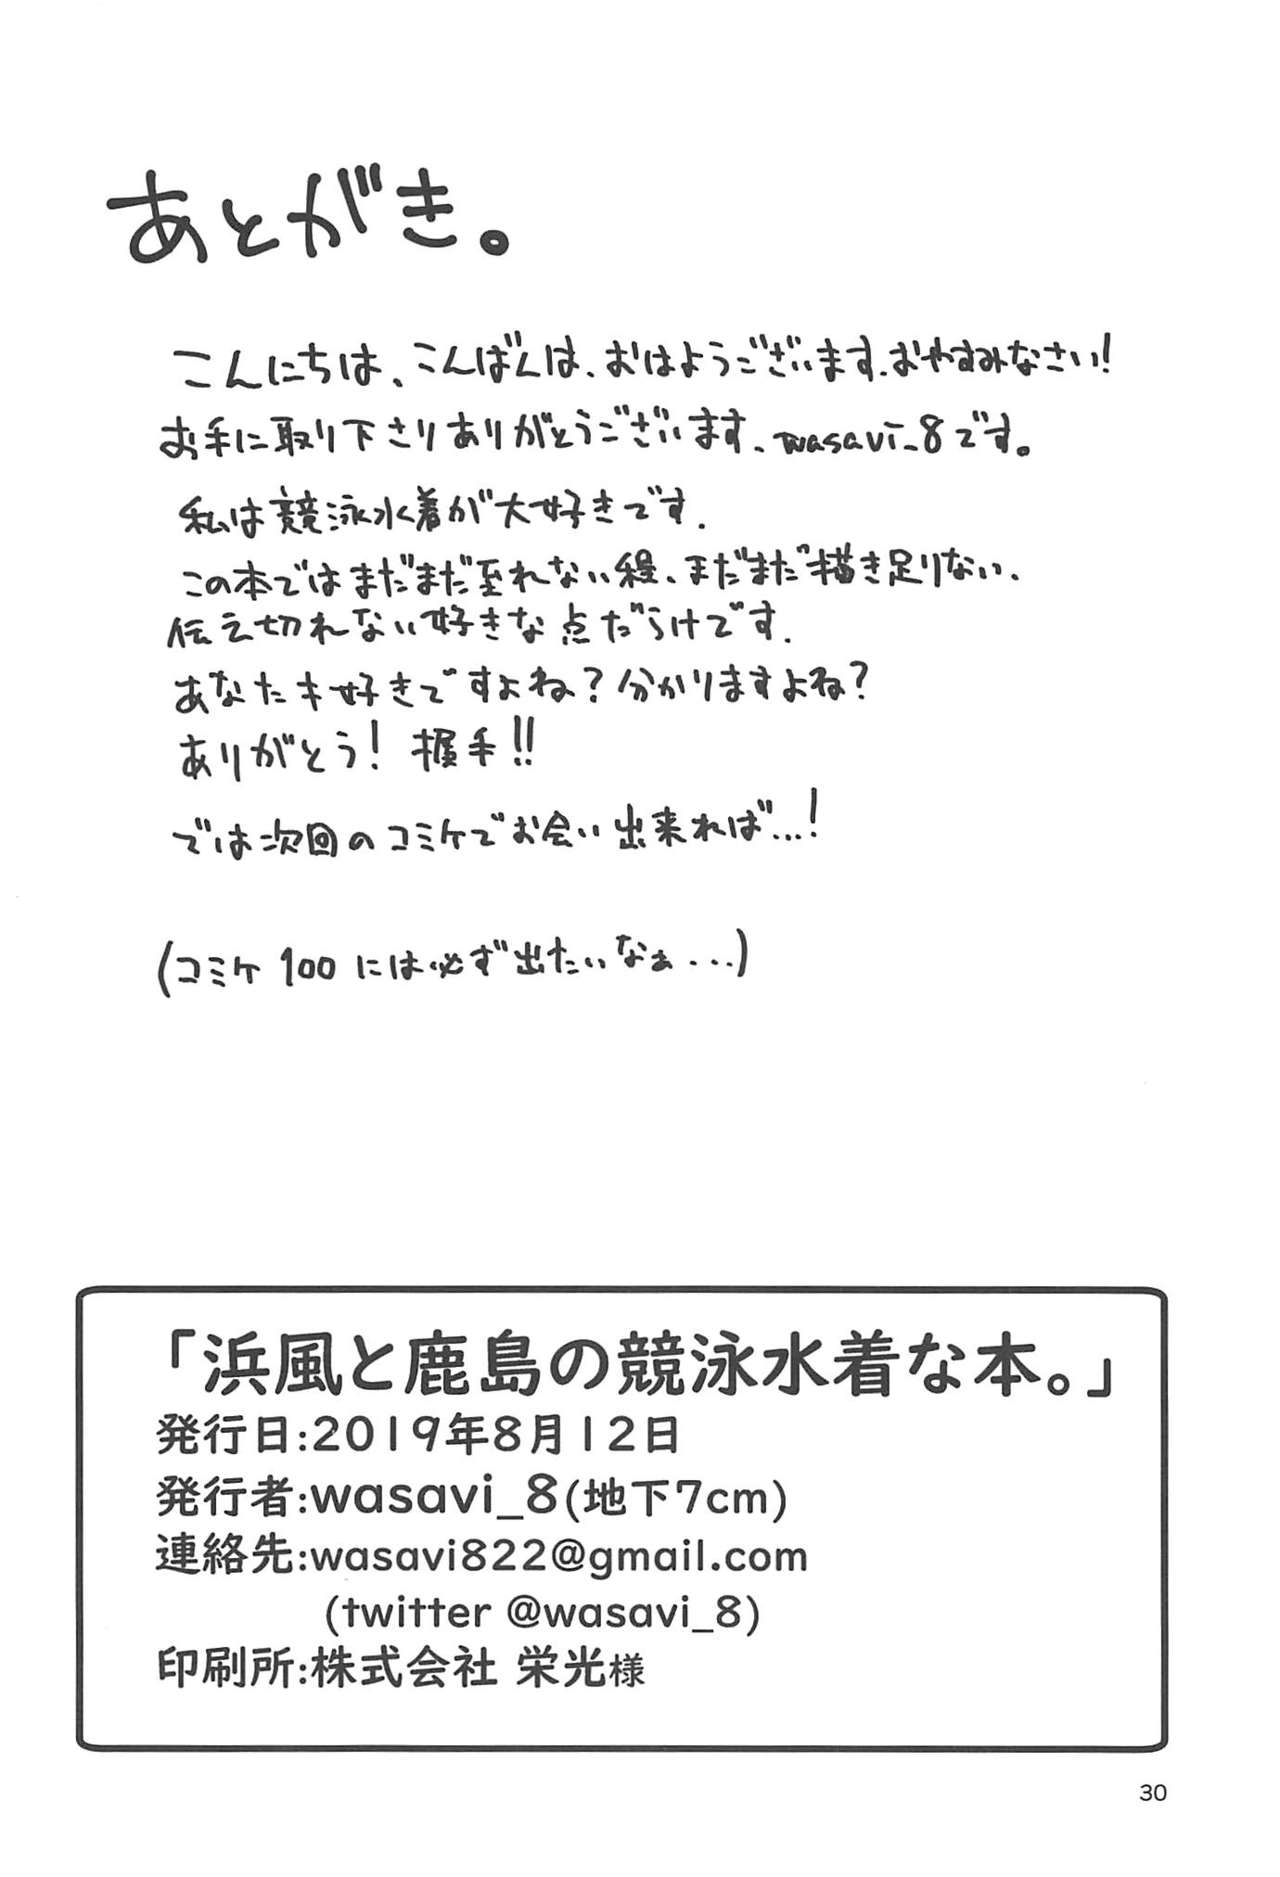 あとがき。
こんにちは、こんばんは、おはようございます、おやすみなさい!
お手に取り下さりありがとうございます、wasavi_8です。
私は競泳水着が大好きです。
この本ではまだまだ至れない程、まだまだ描き足りない、
伝え切れない好きな点だらけです。
あなたも好きですよね?分かりますよね?
ありがとう! 握手!!
では次回のコミケでお会い出来れば…!
(コミケ100には必ず出たいなぁ...)
「浜風と鹿島の競泳水着な本。」
発行日:2019年8月12日
発行者:wasavi_8(地下7cm)
連絡先:wasavi822@gmail.com
(twitter @wasavi_8)
印刷所:株式会社 栄光様
30